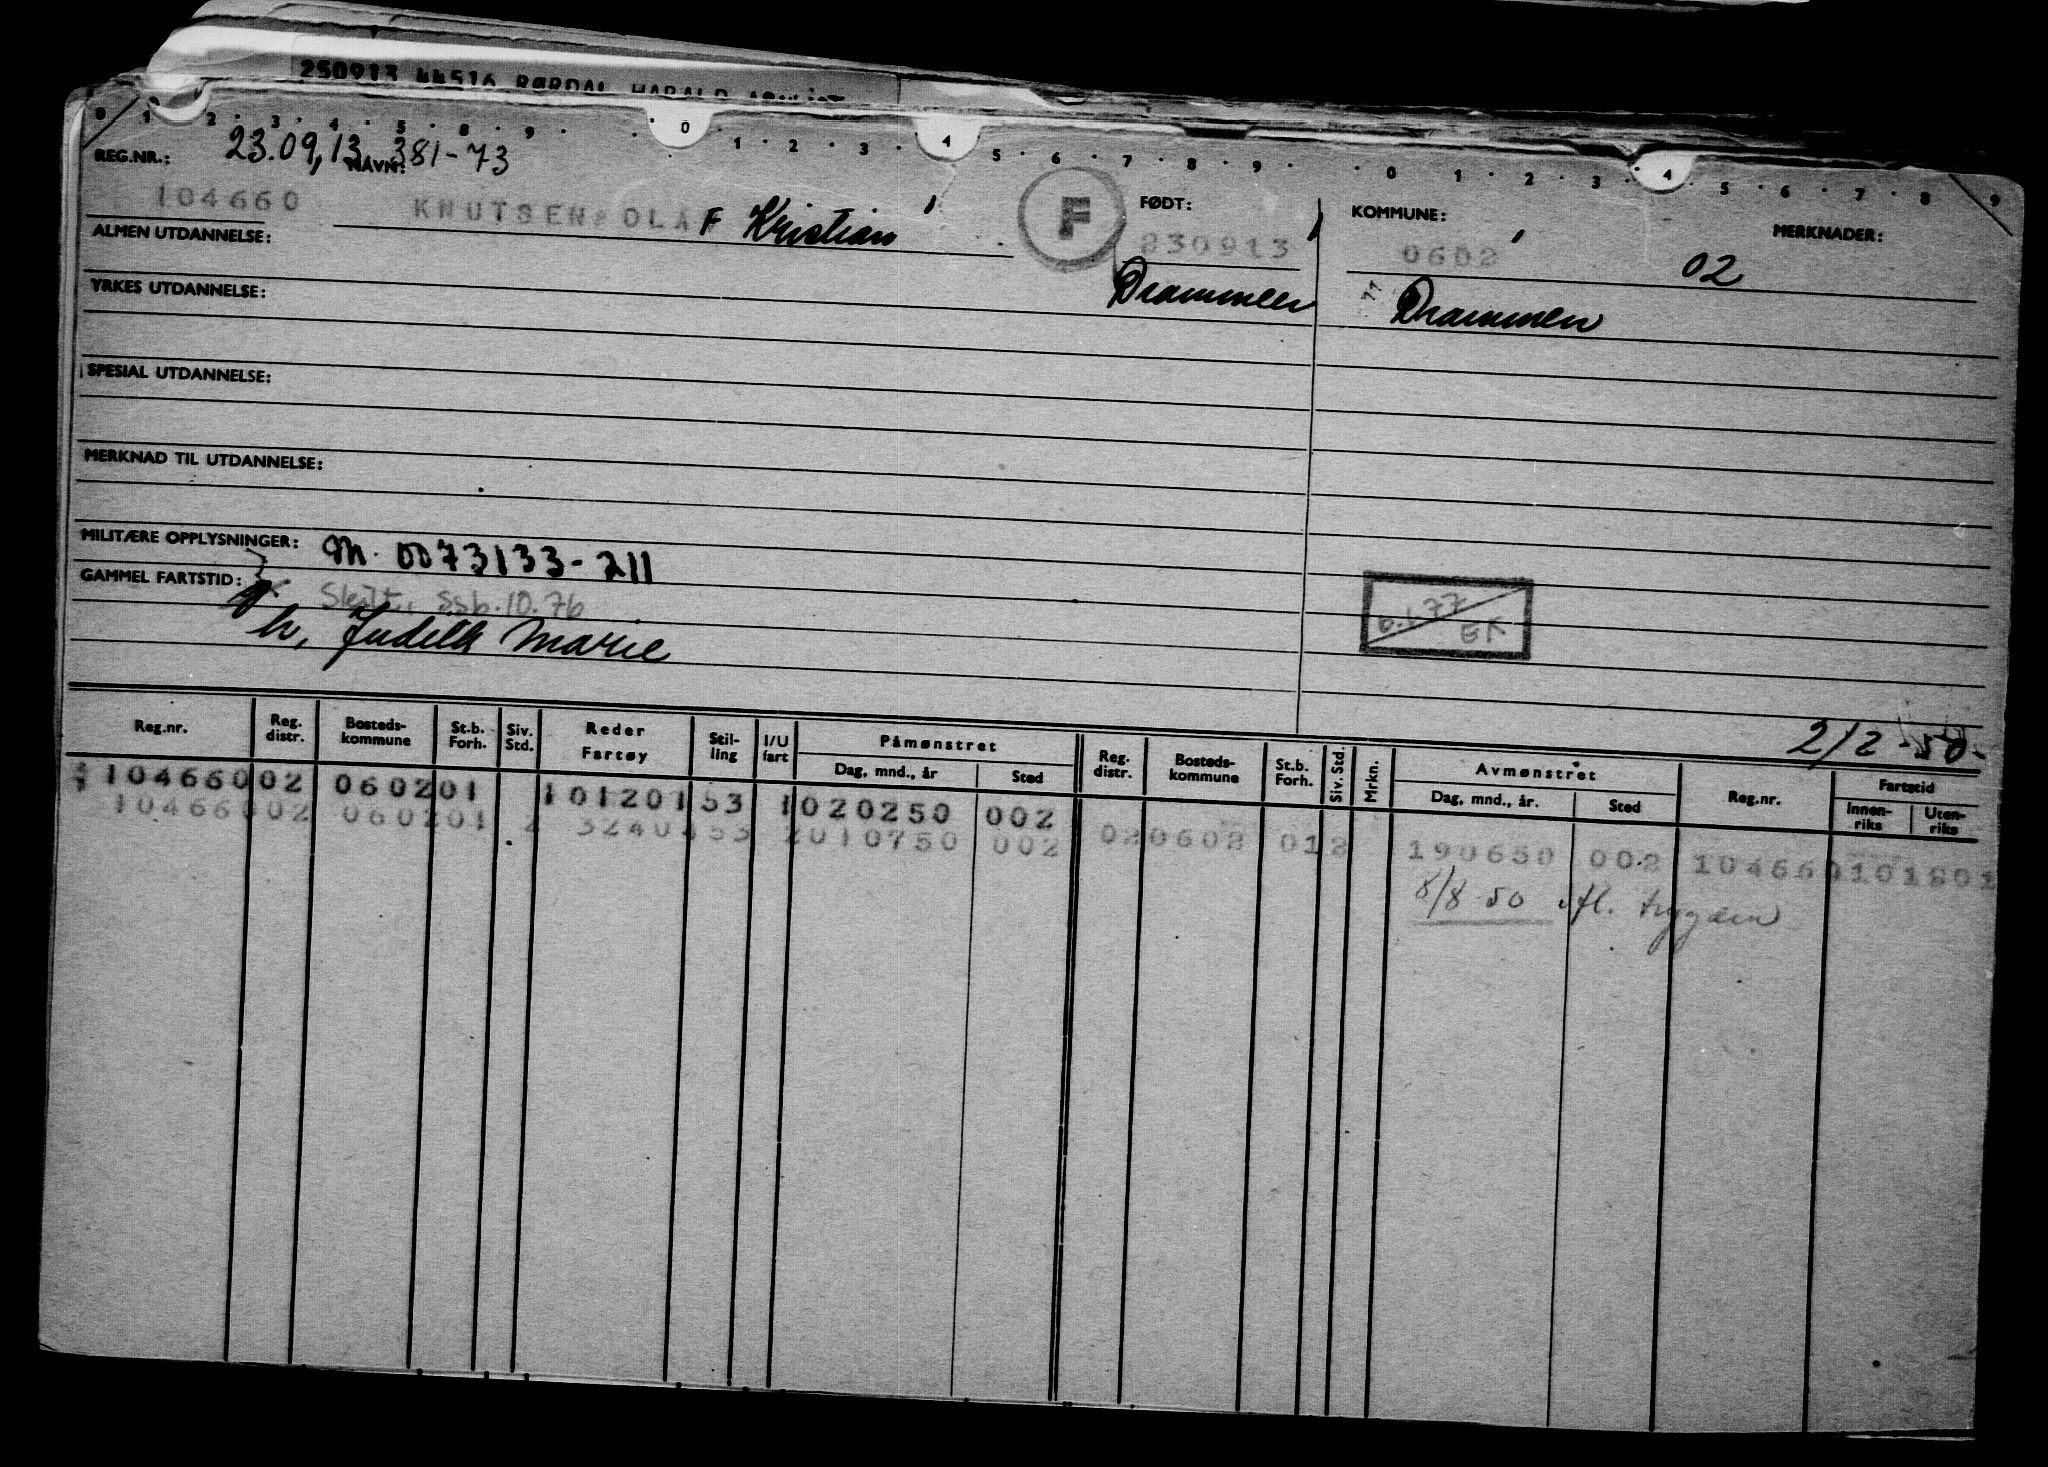 250913 44516 RØRDAL HARALD
0 1 2 3 4 5 8 9 0 1 2 3 4 5 6 7 8 9 0 1 2 3 4 5 6 7 8 9
REG.NR.: 23.09,13 NAVN: 381-73
104660 KNUTSEN OLAF Kristian F FØDT: 230913 KOMMUNE: 0602 02 MERKNADER:
ALMEN UTDANNELSE:
Drammen Drammen
YRKES UTDANNELSE:
SPESIAL UTDANNELSE:
MERKNAD TIL UTDANNELSE:
MILITÆRE OPPLYSNINGER: M. 0073133-211
GAMMEL FARTSTID: Skilt, ssb.10.76
h, Judith Marie
6.1.77 EK
2/2-50-
Reg.nr. Reg. distr. Bosteds-kommune St.b. Forh. Siv. Std. Reder Fartøy Stil-ling I/U fart Påmønstret Dag, mnd., år Sted Reg. distr. Bosteds-kommune St.b. Forh. Siv. Std. Mrkn. Avmønstret Dag, mnd., år. Sted Reg.nr. Fartstid Innen-riks Uten-riks
104660 02 0602 01 101201 53 1 020250 002
104660 02 0602 01 2 3240 53 2 010750 002 02 0602 01 2 190650 002 104660 101201
8/8 50 fl. trygden